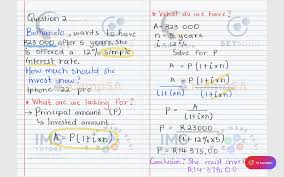 Question 2
Boitumelo, wants to have
R23 000 after 5 years. She
is offered a 12% simple
interest rate.
How much should she
invest now?
Iphone 22 pro
* What are we looking for?
→ Principal amount (P)
↳ Invested amount
A = P(1+ixn)
* What do we have?
A = R23 000
n = 5 years
i = 12%
Solve for P
A = P(1+ixn)
A = P(1+ixn)
(1+ixn) (1+ixn)
P = A
(1+ixn)
P = R23000
(1+12%x5)
P = R14 375,00
Conclusion: She must invest
R14 375,00